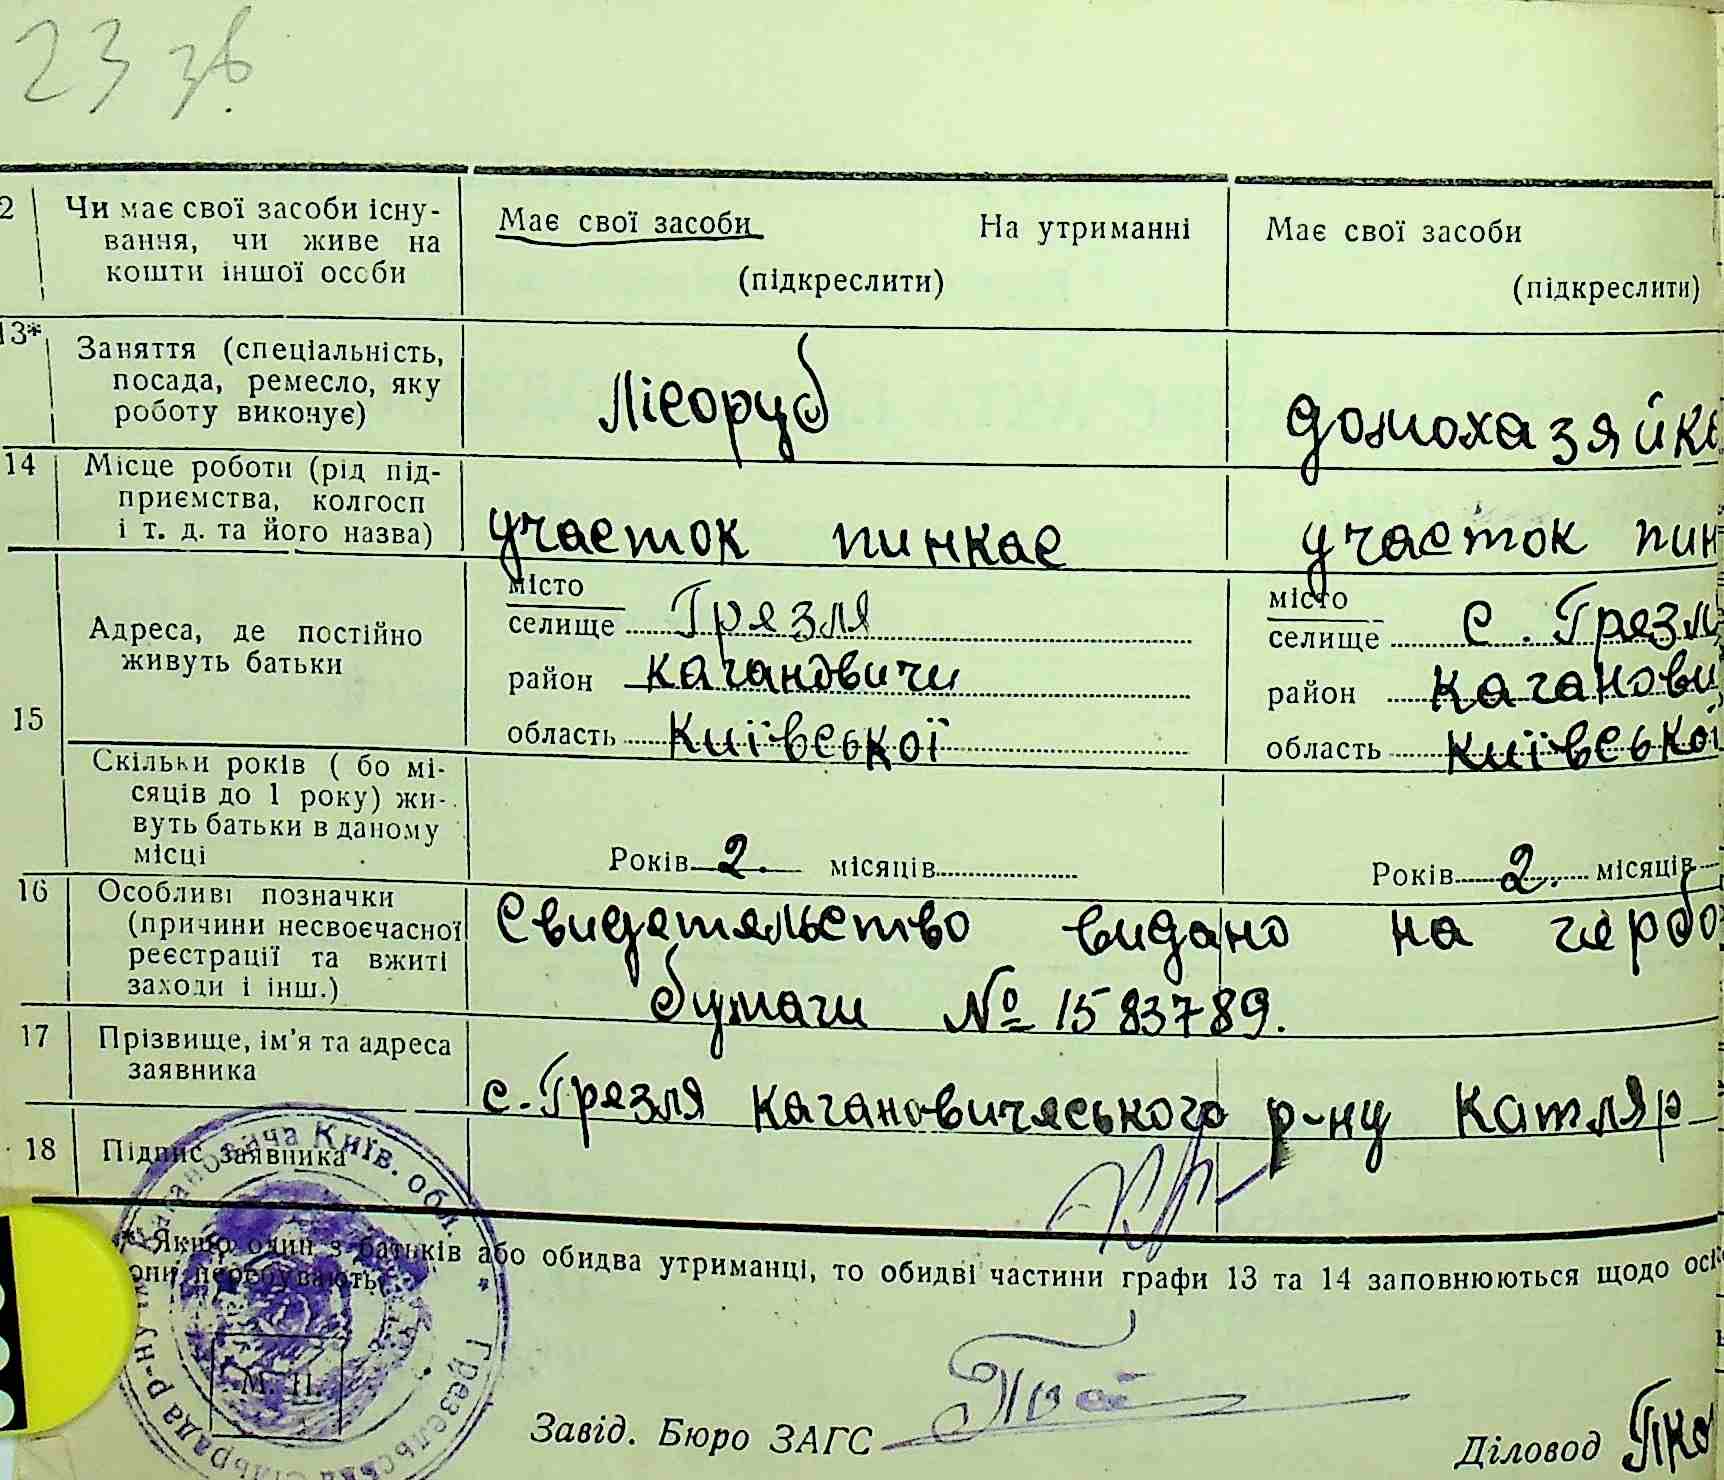 23 зв.
2 Чи має свої засоби існу-
вання, чи живе на
кошти іншої особи
Має свої засоби На утриманні
(підкреслити)
Має свої засоби
(підкреслити)
13* Заняття (спеціальність,
посада, ремесло, яку
роботу виконує)
Лісоруб
домохазяйка
14 Місце роботи (рід під-
приємства, колгосп
і т. д. та його назва)
участок пинкає
участок пин
15
Адреса, де постійно
живуть батьки
місто
селище Грезля
район Кагановичи
область Київської
місто
селище с. Грезл
район Каганови
область Київської
Скільки років ( бо мі-
сяців до 1 року) жи-
вуть батьки в даному
місці
Років 2. місяців
Років 2. місяців
16 Особливі позначки
(причини несвоєчасної
реєстрації та вжиті
заходи і інш.)
Свидетельство видано на гербо
бумаги № 1583789.
17 Прізвище, ім'я та адреса
заявника
с. Грезля Кагановичеського р-ну Катляр
18 Підпис заявника
* Якщо один з батьків або обидва утриманці, то обидві частини графи 13 та 14 заповнюються щодо осі
они перебувають.
М. П.
Кагановича Київ. обл. * Грезельська сільрада р-ну ім.
Завід. Бюро ЗАГС
Діловод